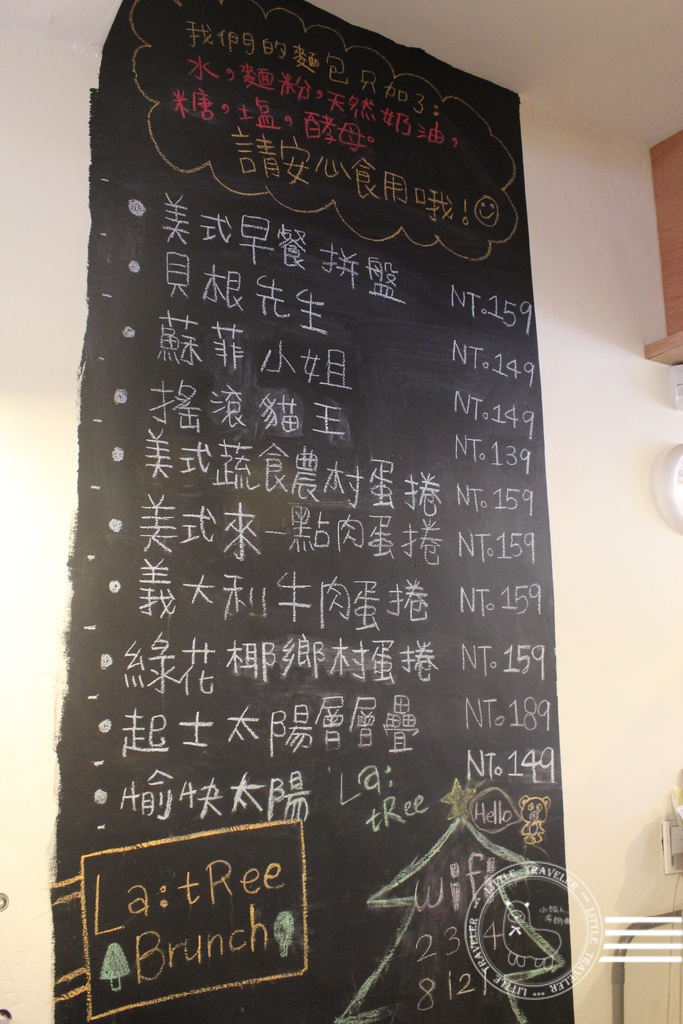 我們的麵包只加了：
水，麵粉，天然奶油，
糖，塩，酵母。
請安心食用哦！
美式早餐拼盤 NT.159
貝根先生 NT.149
蘇菲小姐 NT.149
搖滾貓王 NT.139
美式蔬食農村蛋捲 NT.159
美式來一點肉蛋捲 NT.159
義大利牛肉蛋捲 NT.159
綠花椰鄉村蛋捲 NT.159
起士太陽層層疊 NT.189
愉快太陽 NT.149
La:
tRee
Hello
La:tRee
Brunch
wifi
234
812
LITTLE TRAVELER
LITTLE TRAVELER
LITTLE TRAVELER